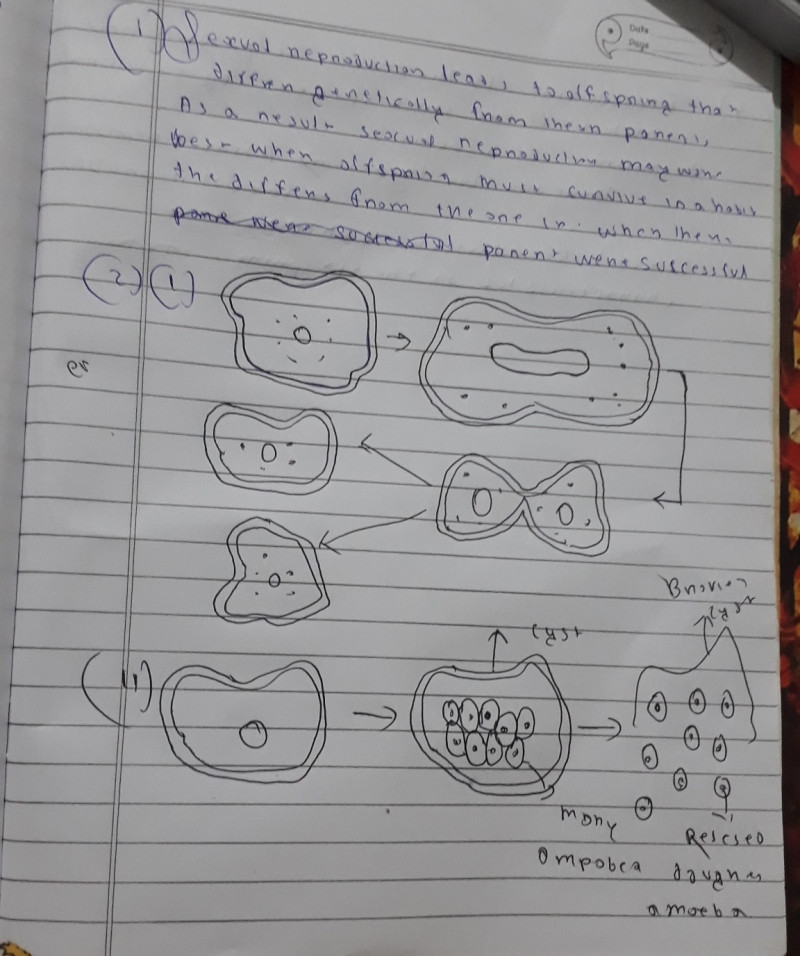 Date
Page
(1) Sexual reproduction leads to offspring that
differ genetically from their parents
As a result sexual reproduction may work
best when offspring must survive in a habit
the differs from the one in when their
parent were successful
(2) (1)
(11)
cyst
many
amoeba
cyst
Released
daughter
amoeba